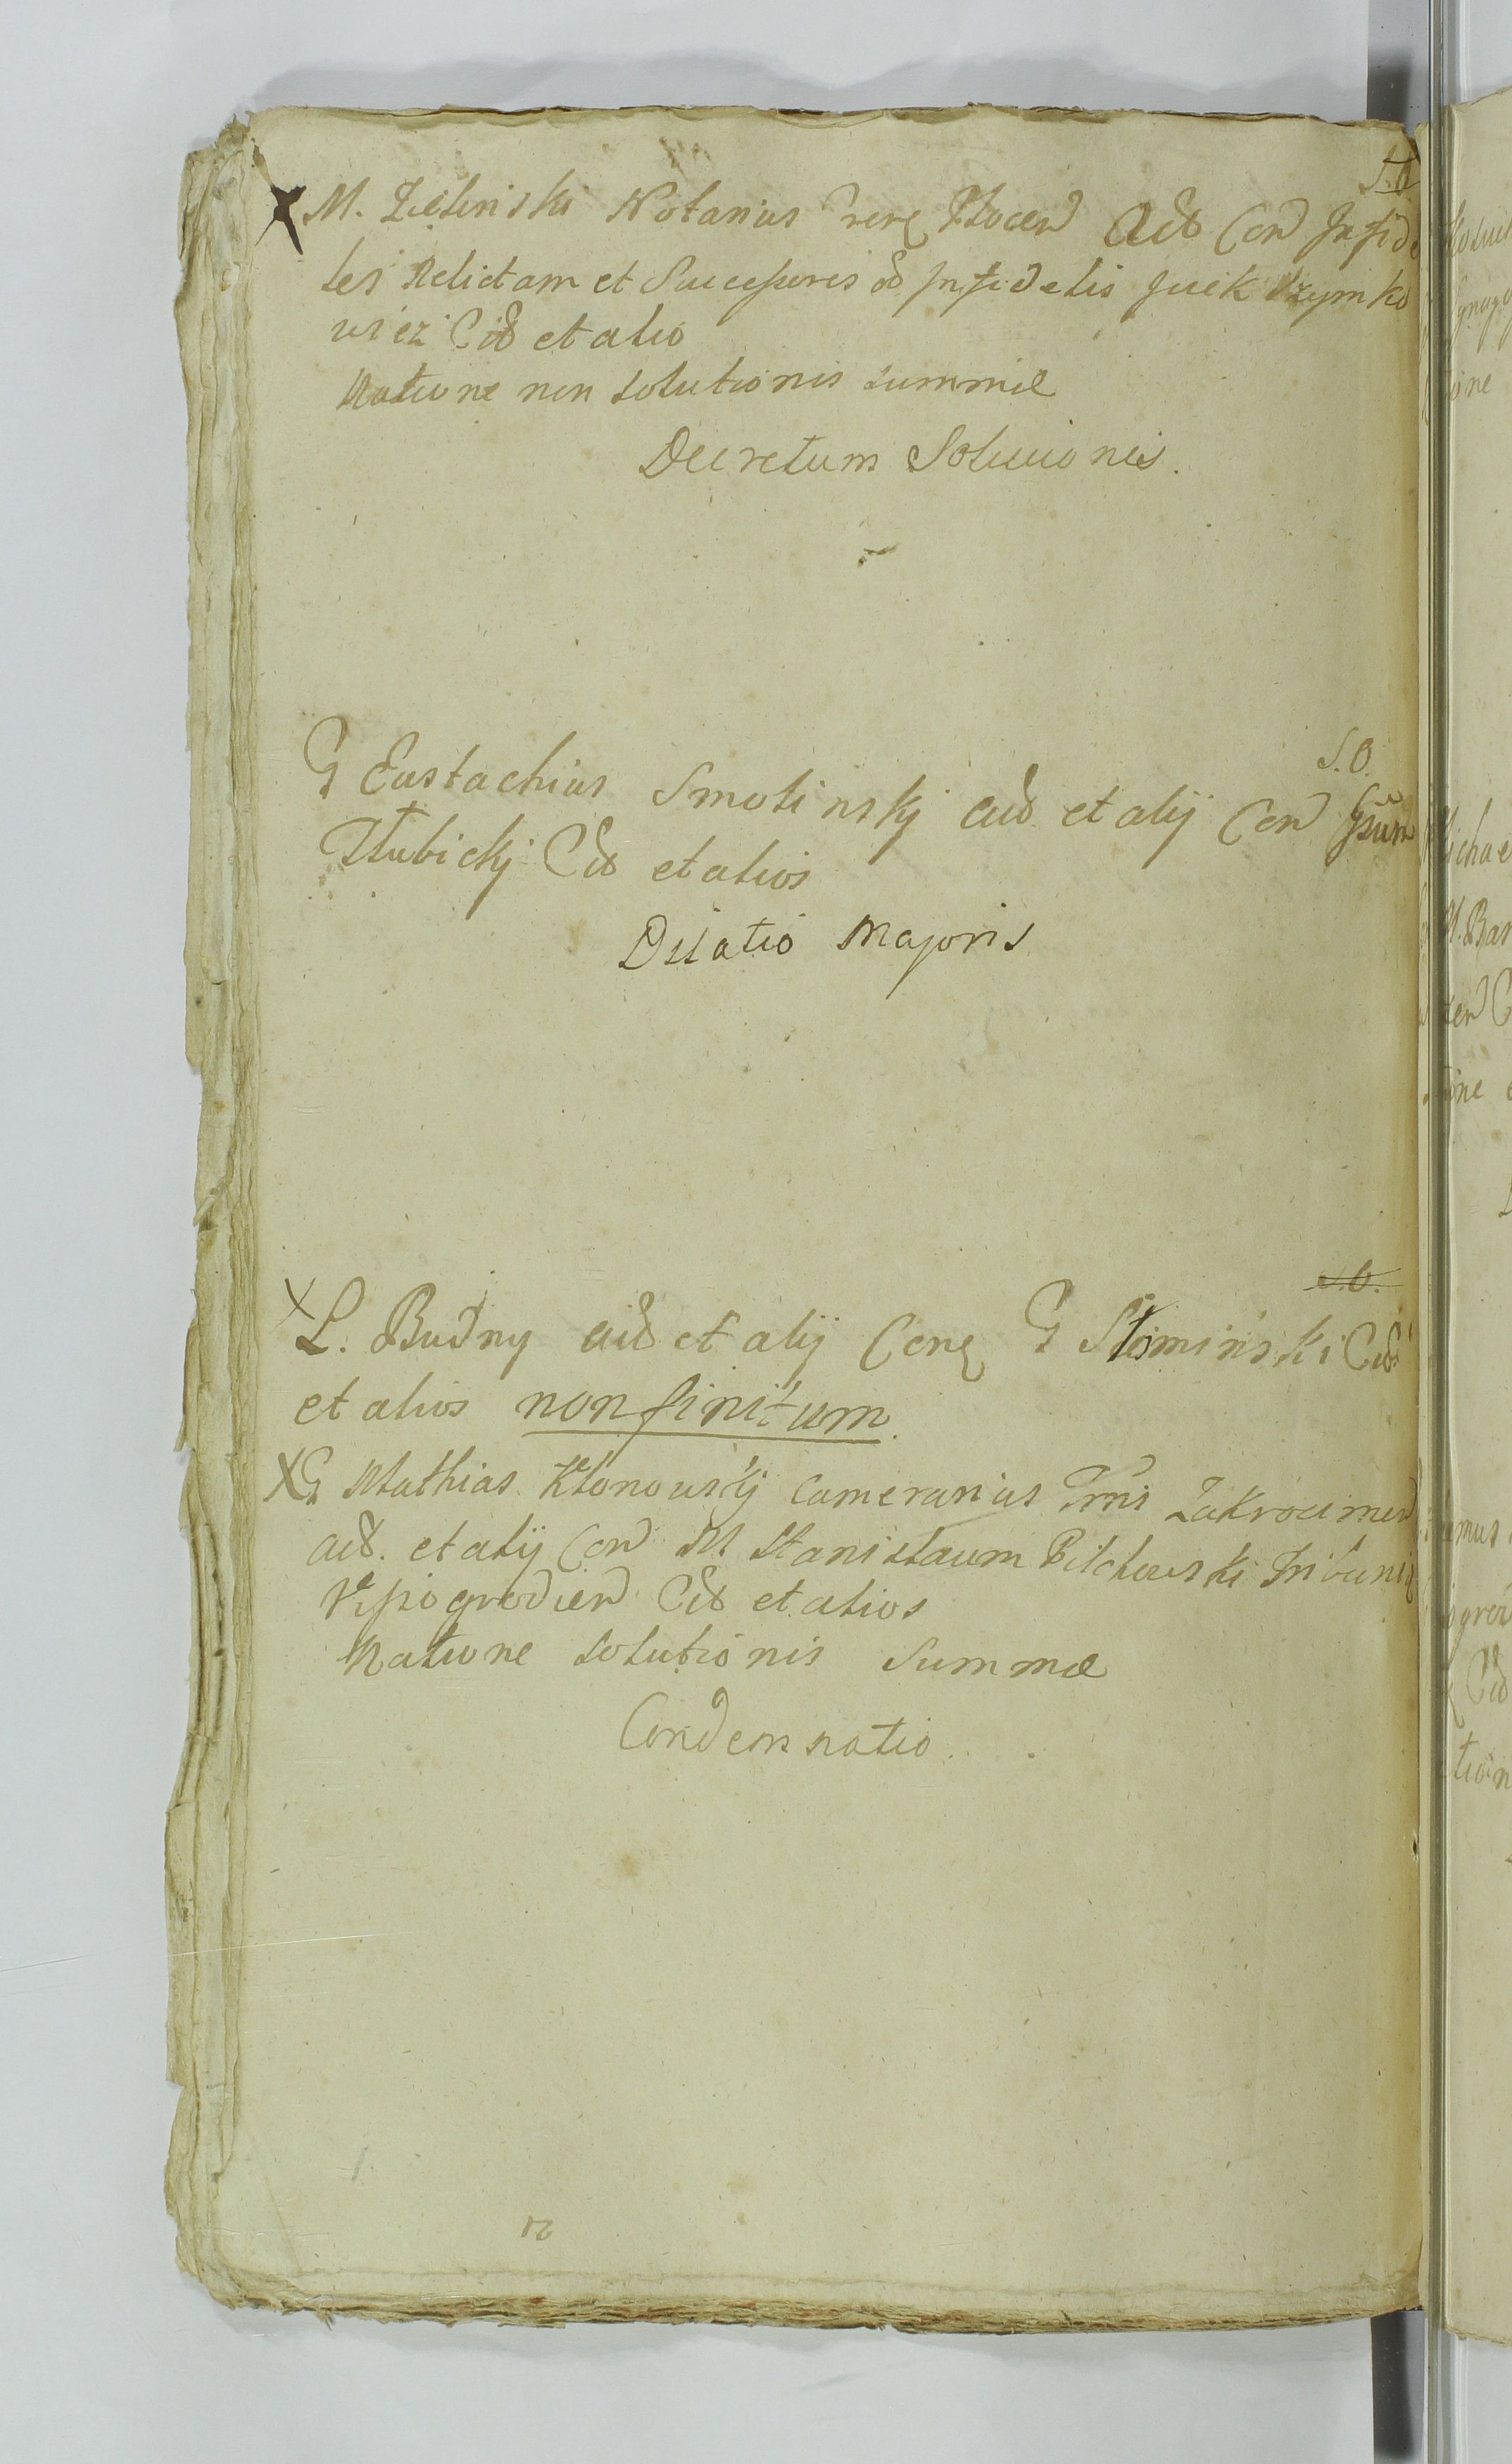 S.O.
X M. Zieliński Notarius Trre Płocen Act Con Infide
les Relictam et Successores od Infidelis Jcek Szymko
wicz Cit et alio
Ratione non Solutionis summæ
Decretum Solucionis.
S.O.
G Eustachius Smolinskj act et alij Con Gsum
Głubickj Cit et alios
Dilatio Majoris
S.O.
X L. Budny act et alij Con G Słomiński Cit
et alios non finitum.
X G Mathias Kłonowskj Camerarius Trris Zakrocimen
act. et alij Con M Stanislaum Pilchowski Tribunu
Vyszogrodien Cit et alios
Ratione Solutionis Summæ
Condemnatio.